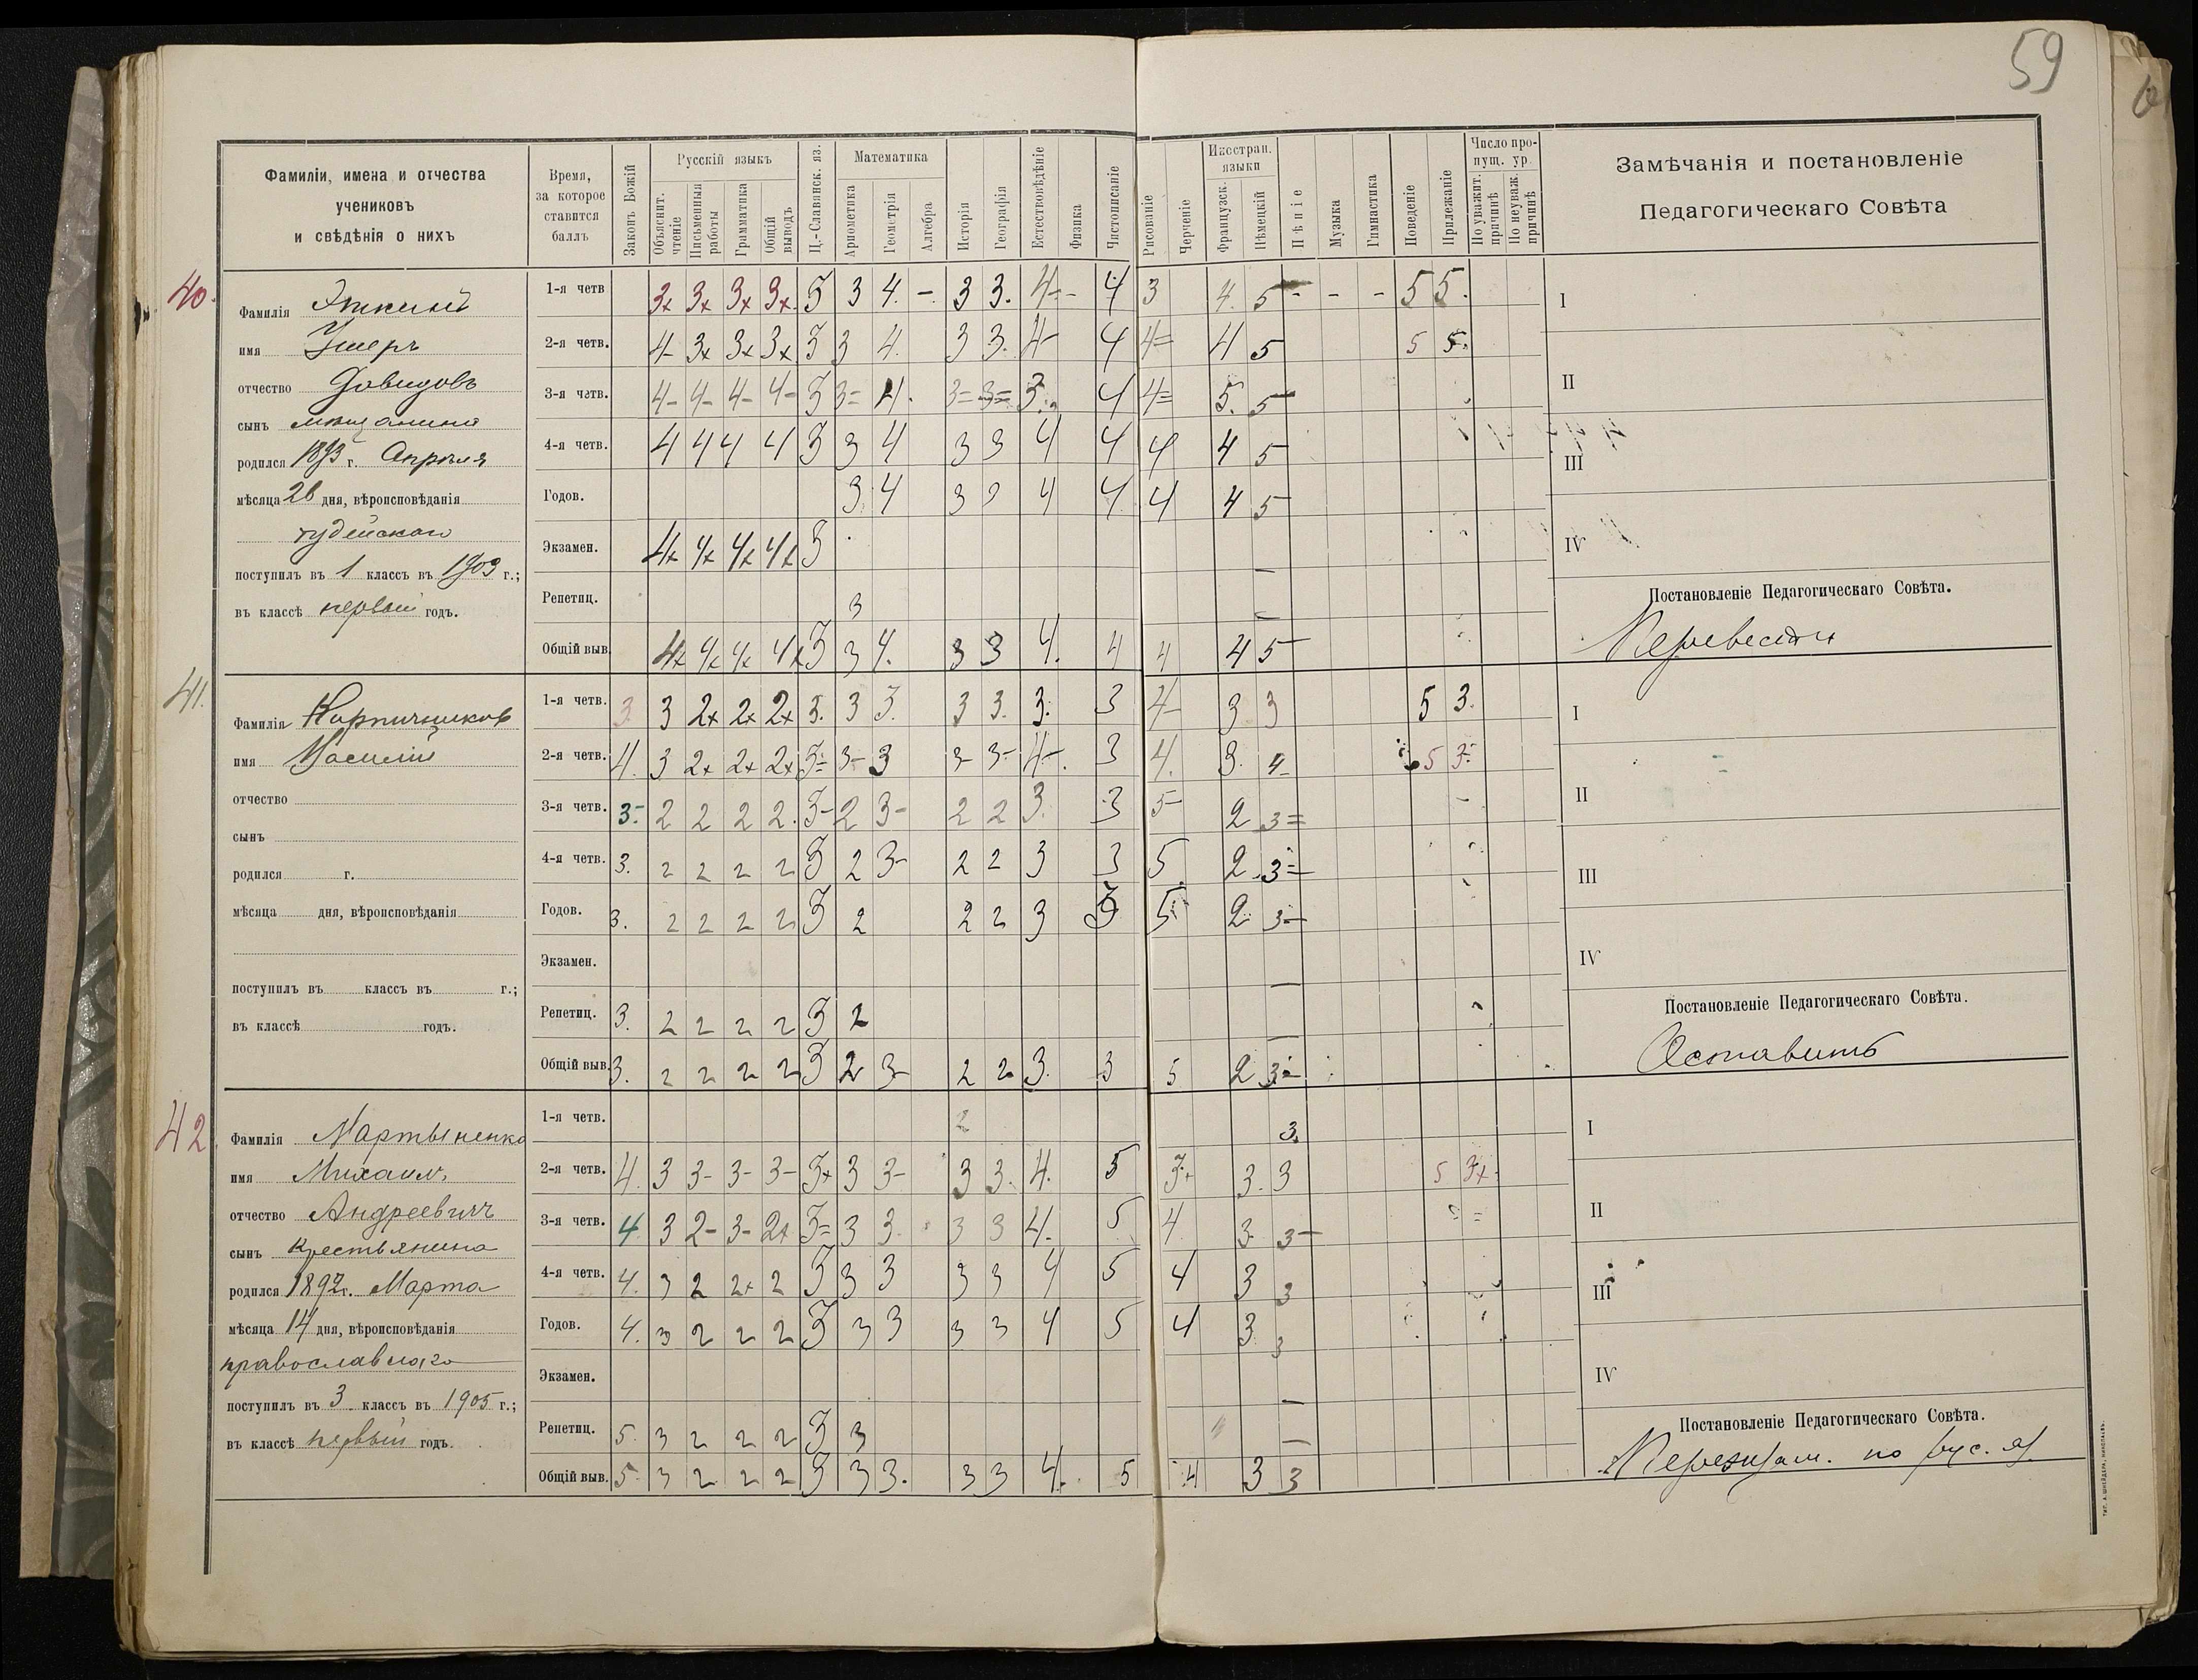 59
Фамиліи, имена и отчества
учениковъ
и свѣдѣнія о нихъ
Время,
за которое
ставится
баллъ
Законъ Божій
Русскій языкъ
Объяснит. чтеніе
Письменныя работы
Грамматика
Общій выводъ
Ц.-Славянск. яз.
Математика
Ариѳметика
Геометрія
Алгебра
Исторія
Географія
Естествовѣдѣніе
Физика
Чистописаніе
Рисованіе
Черченіе
Иностран. языки
Французск.
Нѣмецкій
Пѣніе
Музыка
Гимнастика
Поведеніе
Прилежаніе
Число пропущ. ур.
По уважит. причинѣ
По неуваж. причинѣ
Замѣчанія и постановленіе
Педагогическаго Совѣта
40.
Фамилія Эткинъ
имя Ушеръ
отчество Давидовъ
сынъ мѣщанина
родился 1893 г. Апрѣля
мѣсяца 26 дня, вѣроисповѣданія
іудейскаго
поступилъ въ 1 классъ въ 1903 г.;
въ классѣ первый годъ.
1-я четв 3+ 3+ 3+ 3+ 5 3 4. - 3 3. 4- - 4 3 4. 5- - - - 5 5.
2-я четв. 4- 3+ 3+ 3+ 5 3 4. 3 3. 4- 4 4= 4 5 5 5.
3-я четв. 4- 4- 4- 4- 5 3= 4. 3= 3= 3. 4 4= 5. 5
4-я четв. 4 4 4 4 5 3 4 3 3 4 4 4 4 5
Годов. 3 4 3 3 4 4 4 4 5
Экзамен. 4+ 4+ 4+ 4+ 5 —
Репетиц. 3 —
Общій выв. 4+ 4+ 4+ 4+ 5 3 4. 3 3 4. 4 4 4 5
I
II
III
IV
Постановленіе Педагогическаго Совѣта.
Перевести
41.
Фамилія Кирпичников
имя Василій
отчество
сынъ
родился г.
мѣсяца дня, вѣроисповѣданія
поступилъ въ классъ въ г.;
въ классѣ годъ.
1-я четв. 3. 3 2+ 2+ 2+ 3. 3 3. 3 3. 3. 3 4- 3 3 5 3.
2-я четв. 4. 3 2+ 2+ 2+ 3= 3- 3 3- 3- 4-. 3 4. 3. 4- 5 3-
3-я четв. 3- 2 2 2 2. 3- 2 3- 2 2 3. 3 5- 2 3=
4-я четв. 3. 2 2 2 2 3 2 3- 2 2 3 3 5 2 3=
Годов. 3. 2 2 2 2 3 2 2 2 3 3 5 2 3-
Экзамен. —
Репетиц. 3. 2 2 2 2 3 2 —
Общій выв. 3. 2 2 2 2 3 2 3- 2 2 3. 3 5 2 3-
I
II
III
IV
Постановленіе Педагогическаго Совѣта.
Оставить
42
Фамилія Мартыненко
имя Михаилъ
отчество Андреевичъ
сынъ крестьянина
родился 1892 г. Марта
мѣсяца 14 дня, вѣроисповѣданія
православнаго
поступилъ въ 3 классъ въ 1905 г.;
въ классѣ первый годъ.
1-я четв. 2 3.
2-я четв. 4. 3 3- 3- 3- 3+ 3 3- 3 3. 4. 5 3+ 3. 3 5 3+
3-я четв. 4 3 2- 3- 2+ 3= 3 3. 3 3 4. 5 4. 3. 3-
4-я четв. 4. 3 2 2+ 2 3 3 3 3 3 4 5 4 3 3
Годов. 4. 3 2 2 2 3 3 3 3 3 4 5 4 3 3
Экзамен. —
Репетиц. 5. 3 2 2 2 3 3 —
Общій выв. 5. 3 2 2 2 3 3 3. 3 3 4. 5 4 3 3
I
II
III
IV
Постановленіе Педагогическаго Совѣта.
Переэкзам. по рус. яз.